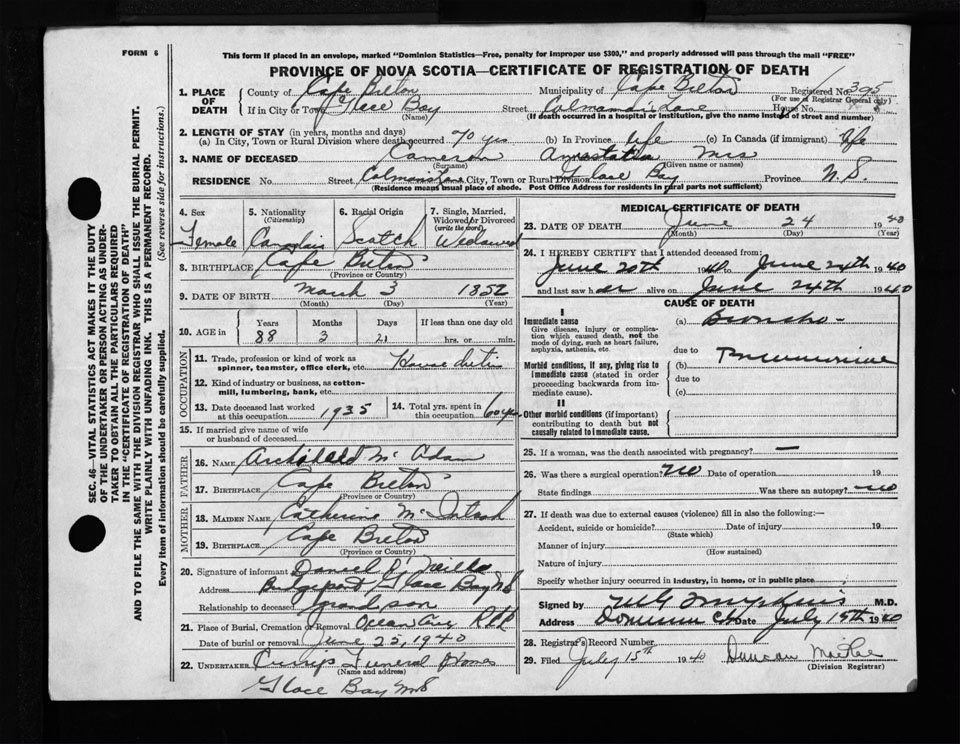 FORM 6
This form if placed in an envelope, marked "Dominion Statistics—Free, penalty for improper use $300," and properly addressed will pass through the mail "FREE"
PROVINCE OF NOVA SCOTIA—CERTIFICATE OF REGISTRATION OF DEATH
SEC. 46—VITAL STATISTICS ACT MAKES IT THE DUTY
OF THE UNDERTAKER OR PERSON ACTING AS UNDER-
TAKER TO OBTAIN ALL THE PARTICULARS REQUIRED
IN THE "CERTIFICATE OF REGISTRATION OF DEATH"
AND TO FILE THE SAME WITH THE DIVISION REGISTRAR WHO SHALL ISSUE THE BURIAL PERMIT.
WRITE PLAINLY WITH UNFADING INK. THIS IS A PERMANENT RECORD.
Every item of information should be carefully supplied. (See reverse side for instructions.)
1. PLACE OF DEATH County of Cape Breton Municipality of Cape Breton Registered No. 395
(For use of Registrar General only)
If in City or Town Glace Bay Street House No.
(Name) (If death occurred in a hospital or institution, give the name instead of street and number)
2. LENGTH OF STAY (in years, months and days)
(a) In City, Town or Rural Division where death occurred 70 yrs (b) In Province life (c) In Canada (if immigrant) life
3. NAME OF DECEASED Cameron Mrs
(Surname) (Given name or names)
RESIDENCE No. Street City, Town or Rural Division Glace Bay Province N.S.
(Residence means usual place of abode. Post Office Address for residents in rural parts not sufficient)
4. Sex Female
5. Nationality (Citizenship) Canadian
6. Racial Origin Scotch
7. Single, Married, Widowed or Divorced (write the word) Widowed
8. BIRTHPLACE Cape Breton
(Province or Country)
9. DATE OF BIRTH March 3 1852
(Month) (Day) (Year)
10. AGE in Years 88 Months 3 Days 21 If less than one day old hrs. or min.
OCCUPATION
11. Trade, profession or kind of work as spinner, teamster, office clerk, etc. House duties
12. Kind of industry or business, as cotton-mill, lumbering, bank, etc.
13. Date deceased last worked at this occupation 1935
14. Total yrs. spent in this occupation 60 yrs
15. If married give name of wife or husband of deceased
FATHER
16. NAME Archibald Mc Adam
17. BIRTHPLACE Cape Breton
(Province or Country)
MOTHER
18. MAIDEN NAME Catherine McIntosh
19. BIRTHPLACE Cape Breton
(Province or Country)
20. Signature of informant Daniel
Address Bridgeport Glace Bay NS
Relationship to deceased grandson
21. Place of Burial, Cremation or Removal
Date of burial or removal June 25, 1940
22. UNDERTAKER Funeral Home
(Name and address)
Glace Bay NS
MEDICAL CERTIFICATE OF DEATH
23. DATE OF DEATH June 24 1940
(Month) (Day) (Year)
24. I HEREBY CERTIFY that I attended deceased from
June 20th 1940 to June 24th 1940
and last saw her alive on June 24th 1940
CAUSE OF DEATH
I
Immediate cause (a) Broncho-
Give disease, injury or complication which caused death, not the mode of dying, such as heart failure, asphyxia, asthenia, etc.
due to Pneumonia
Morbid conditions, if any, giving rise to immediate cause (stated in order proceeding backwards from immediate cause). (b)
due to
(c)
II
Other morbid conditions (if important) contributing to death but not causally related to immediate cause.
25. If a woman, was the death associated with pregnancy? —
26. Was there a surgical operation? no Date of operation 19
State findings Was there an autopsy? no
27. If death was due to external causes (violence) fill in also the following:—
Accident, suicide or homicide? Date of injury 19
(State which)
Manner of injury
(How sustained)
Nature of injury
Specify whether injury occurred in industry, in home, or in public place
Signed by M.D.
Address Dominion Date July 15th 1940
28. Registrar's Record Number
29. Filed July 15th 1940 Duncan
(Division Registrar)